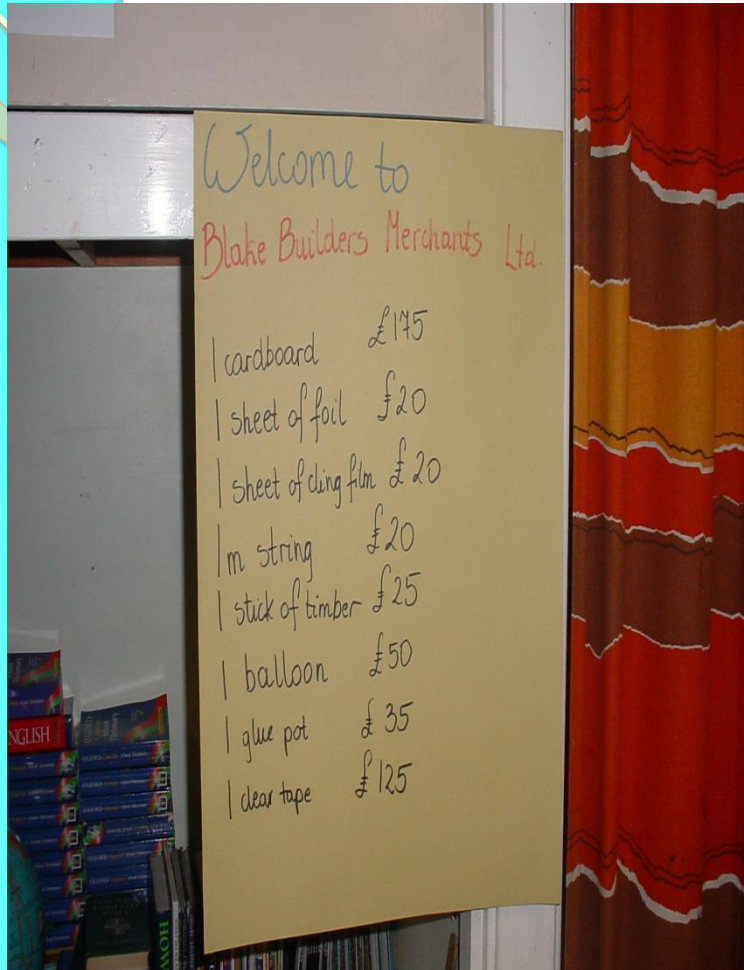 Welcome to
Blake Builders Merchants Ltd.
1 cardboard £175
1 sheet of foil £20
1 sheet of cling film £20
1m string £20
1 stick of timber £25
1 balloon £50
1 glue pot £35
1 clear tape £125
ENGLISH
HOW